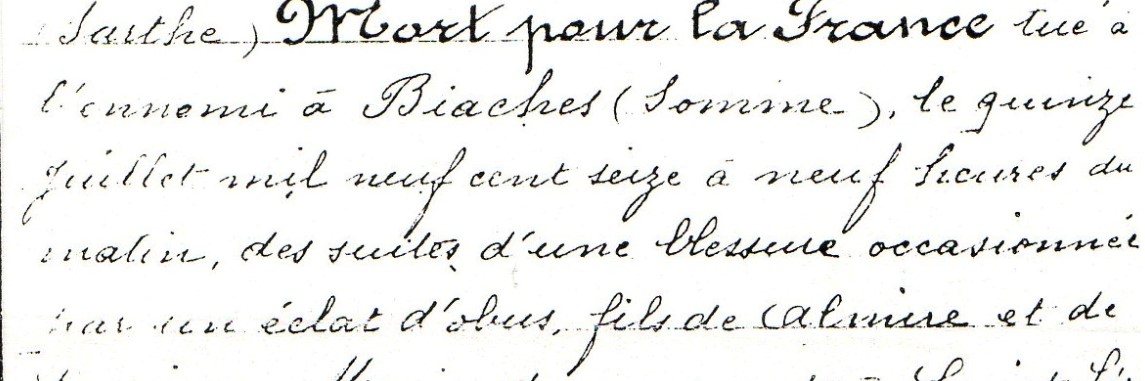 (Sarthe) Mort pour la France tué à
l'ennemi à Biaches (Somme), le quinze
juillet mil neuf cent seize à neuf heures du
matin, des suites d'une blessure occasionnée
par un éclat d'obus, fils de Almire et de